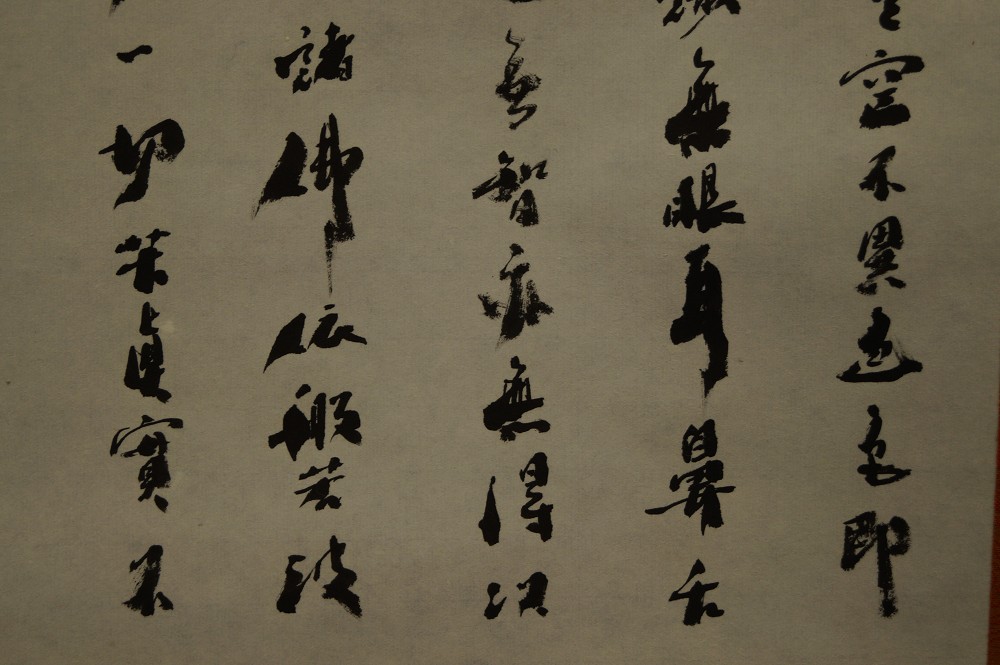 空不異色色即
無眼耳鼻舌
無智亦無得以
諸佛依般若波
一切苦真實不